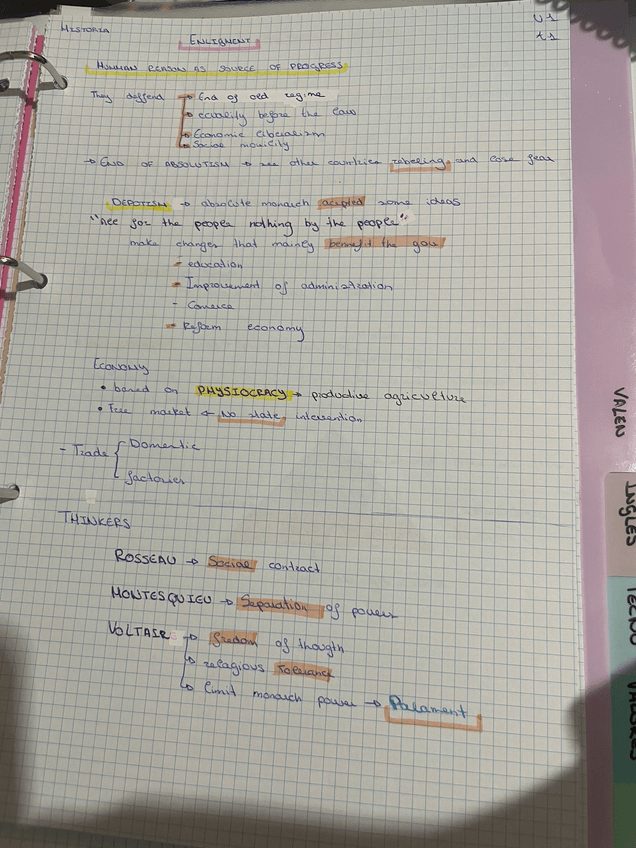 HISTORIA
U1
t1
ENLIGMENT
HUMAN REASON AS SOURCE OF PROGRESS
They deffend → End of old regime
→ ecuality before the law
→ Economic liberalism
→ Social movility
→ END OF ABSOLUTISM → see other countries rebeling and cose fear
DEPOTISM → absolute monarch acupted some ideas
"All for the people nothing by the people"
make changes that mainly bennefit the gov
- education
- Improvement of administration
- Comerce
- Reform economy
ECONOMY
• based on PHYSIOCRACY → productive agriculture
• Free market ← No state intervention
- Trade { Domestic
factories
THINKERS
ROSSEAU → Social contract
MONTESQUIEU → Separation of power
VOLTAIRE → fredom of thougth
→ relagious Tolerance
→ limit monarch power → Palament
VALEN
INGLES
TECNO
VALORES